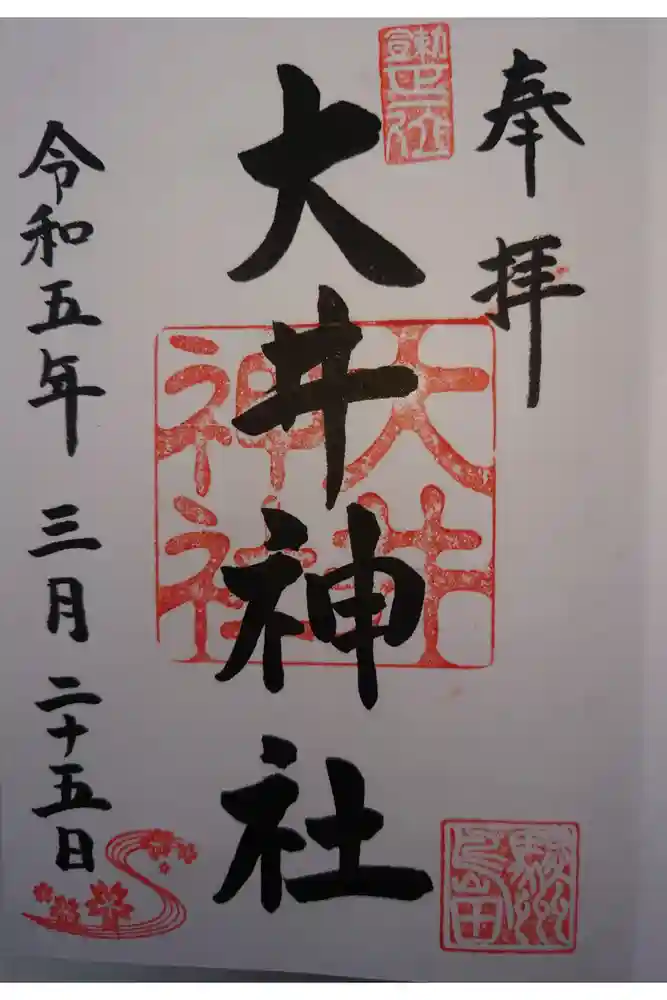 奉拝
大井神社
令和五年 三月 二十五日
大井
神社